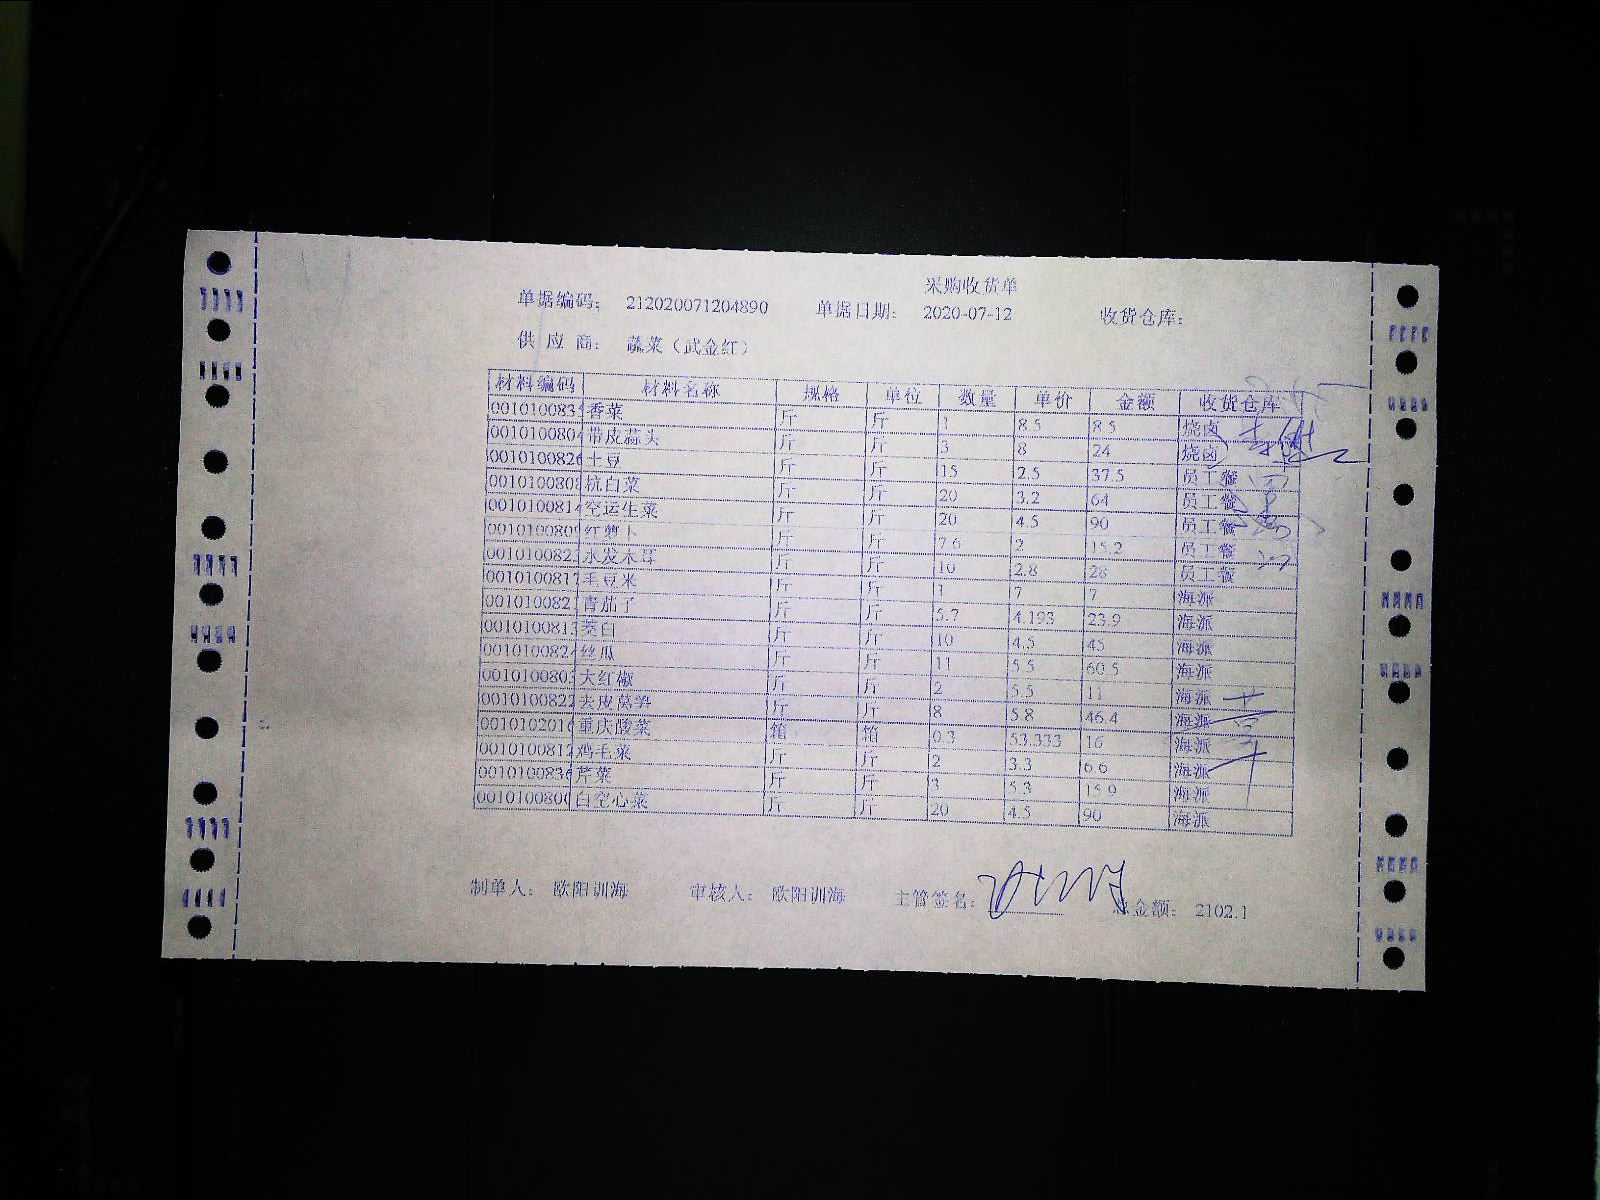 采购收货单
单据编码: 212020071204890 单据日期: 2020-07-12 收货仓库:
供应商: 蔬菜(武金红)
材料编码 材料名称 规格 单位 数量 单价 金额 收货仓库
0010100835 香菜 斤 斤 1 8.5 8.5 烧卤
0010100804 带皮蒜头 斤 斤 3 8 24 烧卤
0010100826 土豆 斤 斤 15 2.5 37.5 员工餐
0010100808 杭白菜 斤 斤 20 3.2 64 员工餐
0010100814 空运生菜 斤 斤 20 4.5 90 员工餐
001010080 红萝卜 斤 斤 7.6 2 15.2 员工餐
001010082 水发木耳 斤 斤 10 2.8 28 员工餐
001010081 毛豆米 斤 斤 1 7 7 海派
001010082 青茄子 斤 斤 5.7 4.193 23.9 海派
001010081 茭白 斤 斤 10 4.5 45 海派
001010082 丝瓜 斤 斤 11 5.5 60.5 海派
001010080 大红椒 斤 斤 2 5.5 11 海派
0010100822 去皮莴笋 斤 斤 8 5.8 46.4 海派
001010201 重庆酸菜 箱 箱 0.3 53.333 16 海派
001010081 鸡毛菜 斤 斤 2 3.3 6.6 海派
001010083 芹菜 斤 斤 3 5.3 15.9 海派
001010080 白空心菜 斤 斤 20 4.5 90 海派
制单人: 欧阳训海 审核人: 欧阳训海 主管签名: 总金额: 2102.1